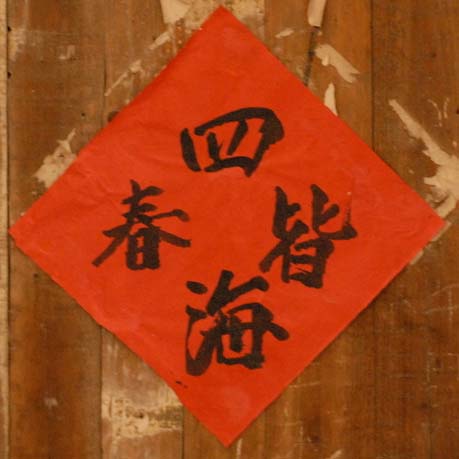 四
海
皆
春